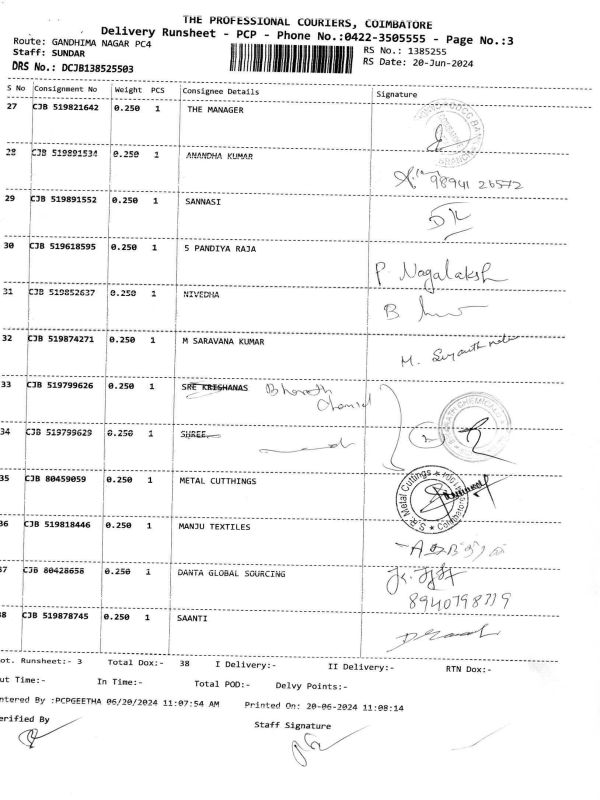 THE PROFESSIONAL COURIERS, COIMBATORE
Delivery Runsheet - PCP - Phone No.:0422-3505555 - Page No.:3
Route: GANDHIMA NAGAR PC4 RS No.: 1385255
Staff: SUNDAR RS Date: 20-Jun-2024
DRS No.: DCJB138525503
S No Consignment No Weight PCS Consignee Details Signature
27 CJB 519821642 0.250 1 THE MANAGER
28 CJB 519891534 0.250 1 ANANDHA KUMAR
98941 26572
29 CJB 519891552 0.250 1 SANNASI
30 CJB 519618595 0.250 1 S PANDIYA RAJA
P. Nagalaksh
31 CJB 519852637 0.250 1 NIVEDHA
B
32 CJB 519874271 0.250 1 M SARAVANA KUMAR
M.
33 CJB 519799626 0.250 1 SRE KRISHANAS Bharath
34 CJB 519799629 0.250 1 SHREE
35 CJB 80459059 0.250 1 METAL CUTTHINGS
S.R. Metal Cuttings
36 CJB 519818446 0.250 1 MANJU TEXTILES
37 CJB 80428658 0.250 1 DANTA GLOBAL SOURCING
8940798719
38 CJB 519878745 0.250 1 SAANTI
ot. Runsheet:- 3 Total Dox:- 38 I Delivery:- II Delivery:- RTN Dox:-
ut Time:- In Time:- Total POD:- Delvy Points:-
ntered By :PCPGEETHA 06/20/2024 11:07:54 AM Printed On: 20-06-2024 11:08:14
erified By Staff Signature